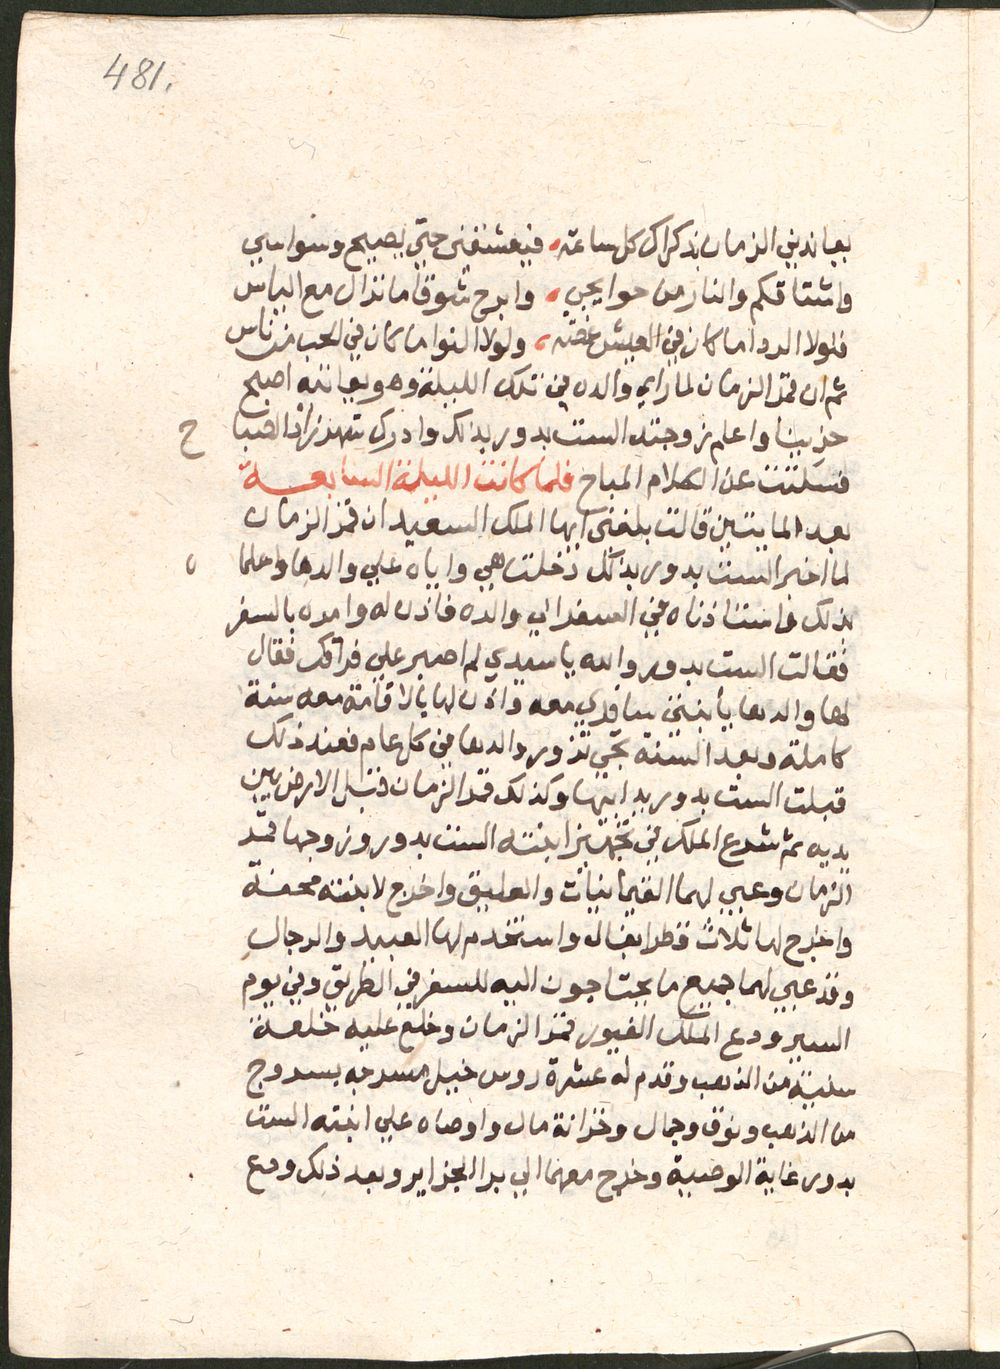 481.
يعاندني الزمان بذكراك كل ساعة، فيعشقني حتي يصبح وسواسي
واشتاقكم والنار من حوايجي، وابرح شوقا ما نزال مع الياس
فلولا الردا ما كان في العيش غصة، ولولا النوا ما كان في الحب من ناس
ثم ان قمر الزمان لما راي والده في تلك الليلة وهو يعاتبه اصبح
حزينا واعلم زوجته الست بدور بذلك وادرك شهرزاد الصبا
ح
فسكتت عن الكلام المباح فلما كانت الليلة السابعة
بعد المايتين قالت بلغني ايها الملك السعيد ان قمر الزمان
لما اخبر الست بدور بذلك دخلت هي واياه علي والدها واعلما
ه
بذلك واستاذناه في السفر الي والده فاذن له وامره بالسفر
فقالت الست بدور والله يا سيدي لم اصبر علي فراقك فقال
لها والدها يا بنتي سافري معه واذن لها بالاقامة معه سنة
كاملة وبعد السنة تجي تزور والدها في كل عام فعند ذلك
قبلت الست بدور يد ابيها وكذلك قمر الزمان قبل الارض بين
يديه ثم شرع الملك في تجهيز ابنته الست بدور وزوجها قمر
الزمان وعبي لهما القيمانيات والعليق واخرج لابنته محفة
واخرج لها ثلاث قطر بغال واستخدم لها العبيد والرجال
وقد عبي لهما جميع ما يحتاجون اليه للسفر في الطريق وفي يوم
السير ودع الملك الغيور قمر الزمان وخلع عليه خلعة
سنية من الذهب وقدم له عشرة روس خيل مسرجه بسروج
من الذهب ونوق وجمال وخزانة مال واوصاه علي ابنته الست
بدور غاية الوصية وخرج معهما الي برا الجزاير وبعد ذلك ودع